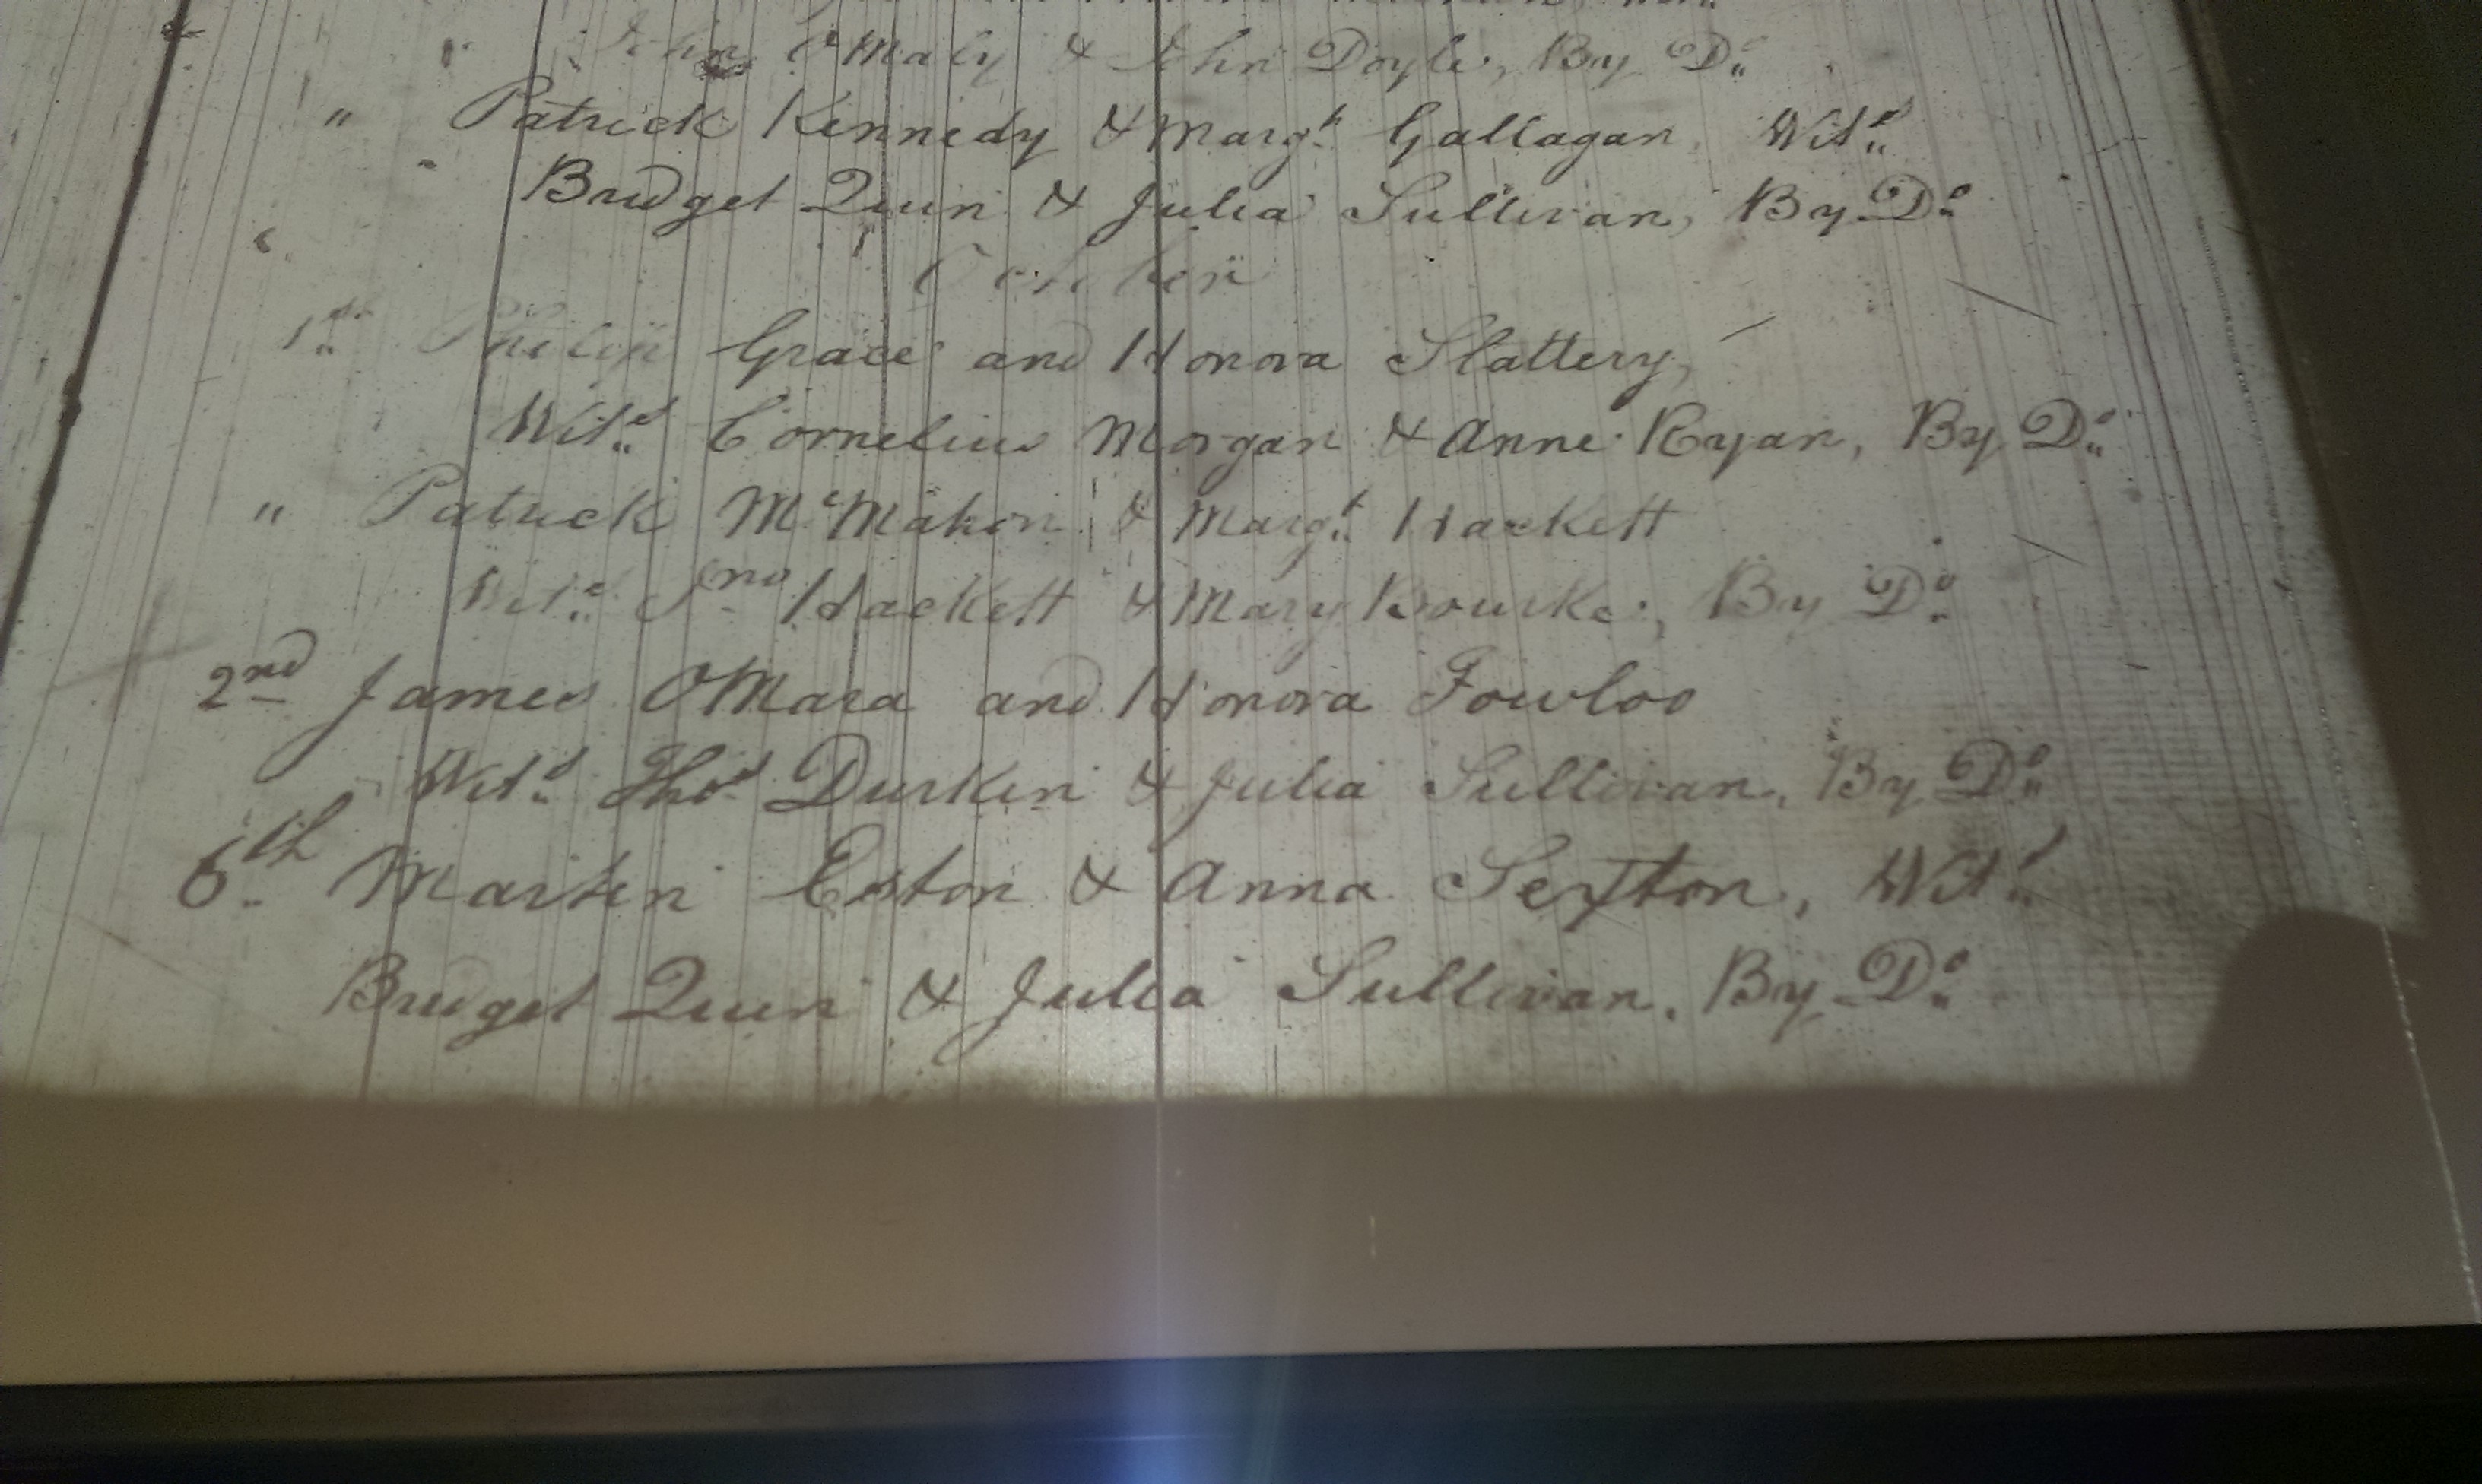 John OMaly & John Doyle, By Do
" Patrick Kennedy & Margt. Gallagan, Witd
Bridget Quin & Julia Sullivan, By Do
October
1st Philip Grace and Honora Slattery,
Witd Cornelius Morgan & Anne Ryan, By Do
" Patrick McMahon & Margt. Hackett
Witd Jno Hackett & Mary Bourke, By Do
2nd James OMara and Honora Fowloo
Witd Thos Durkin & Julia Sullivan, By Do
6th Martin Eston & Anna Sexton, Witd
Bridget Quin & Julia Sullivan. By Do